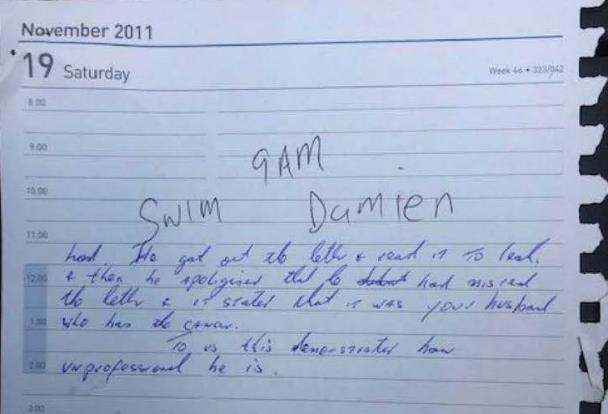 November 2011
19 Saturday
Week 46 • 323/042
8.00
9.00
9AM
10.00
SWIM Damien
11.00
had. He got out the letter & read it to
12.00
& then he apologised that he had misread
the letter & it states that it was your husband
1.00
who has the cancer.
To us this demonstrates how
2.00
unprofessional he is.
3.00